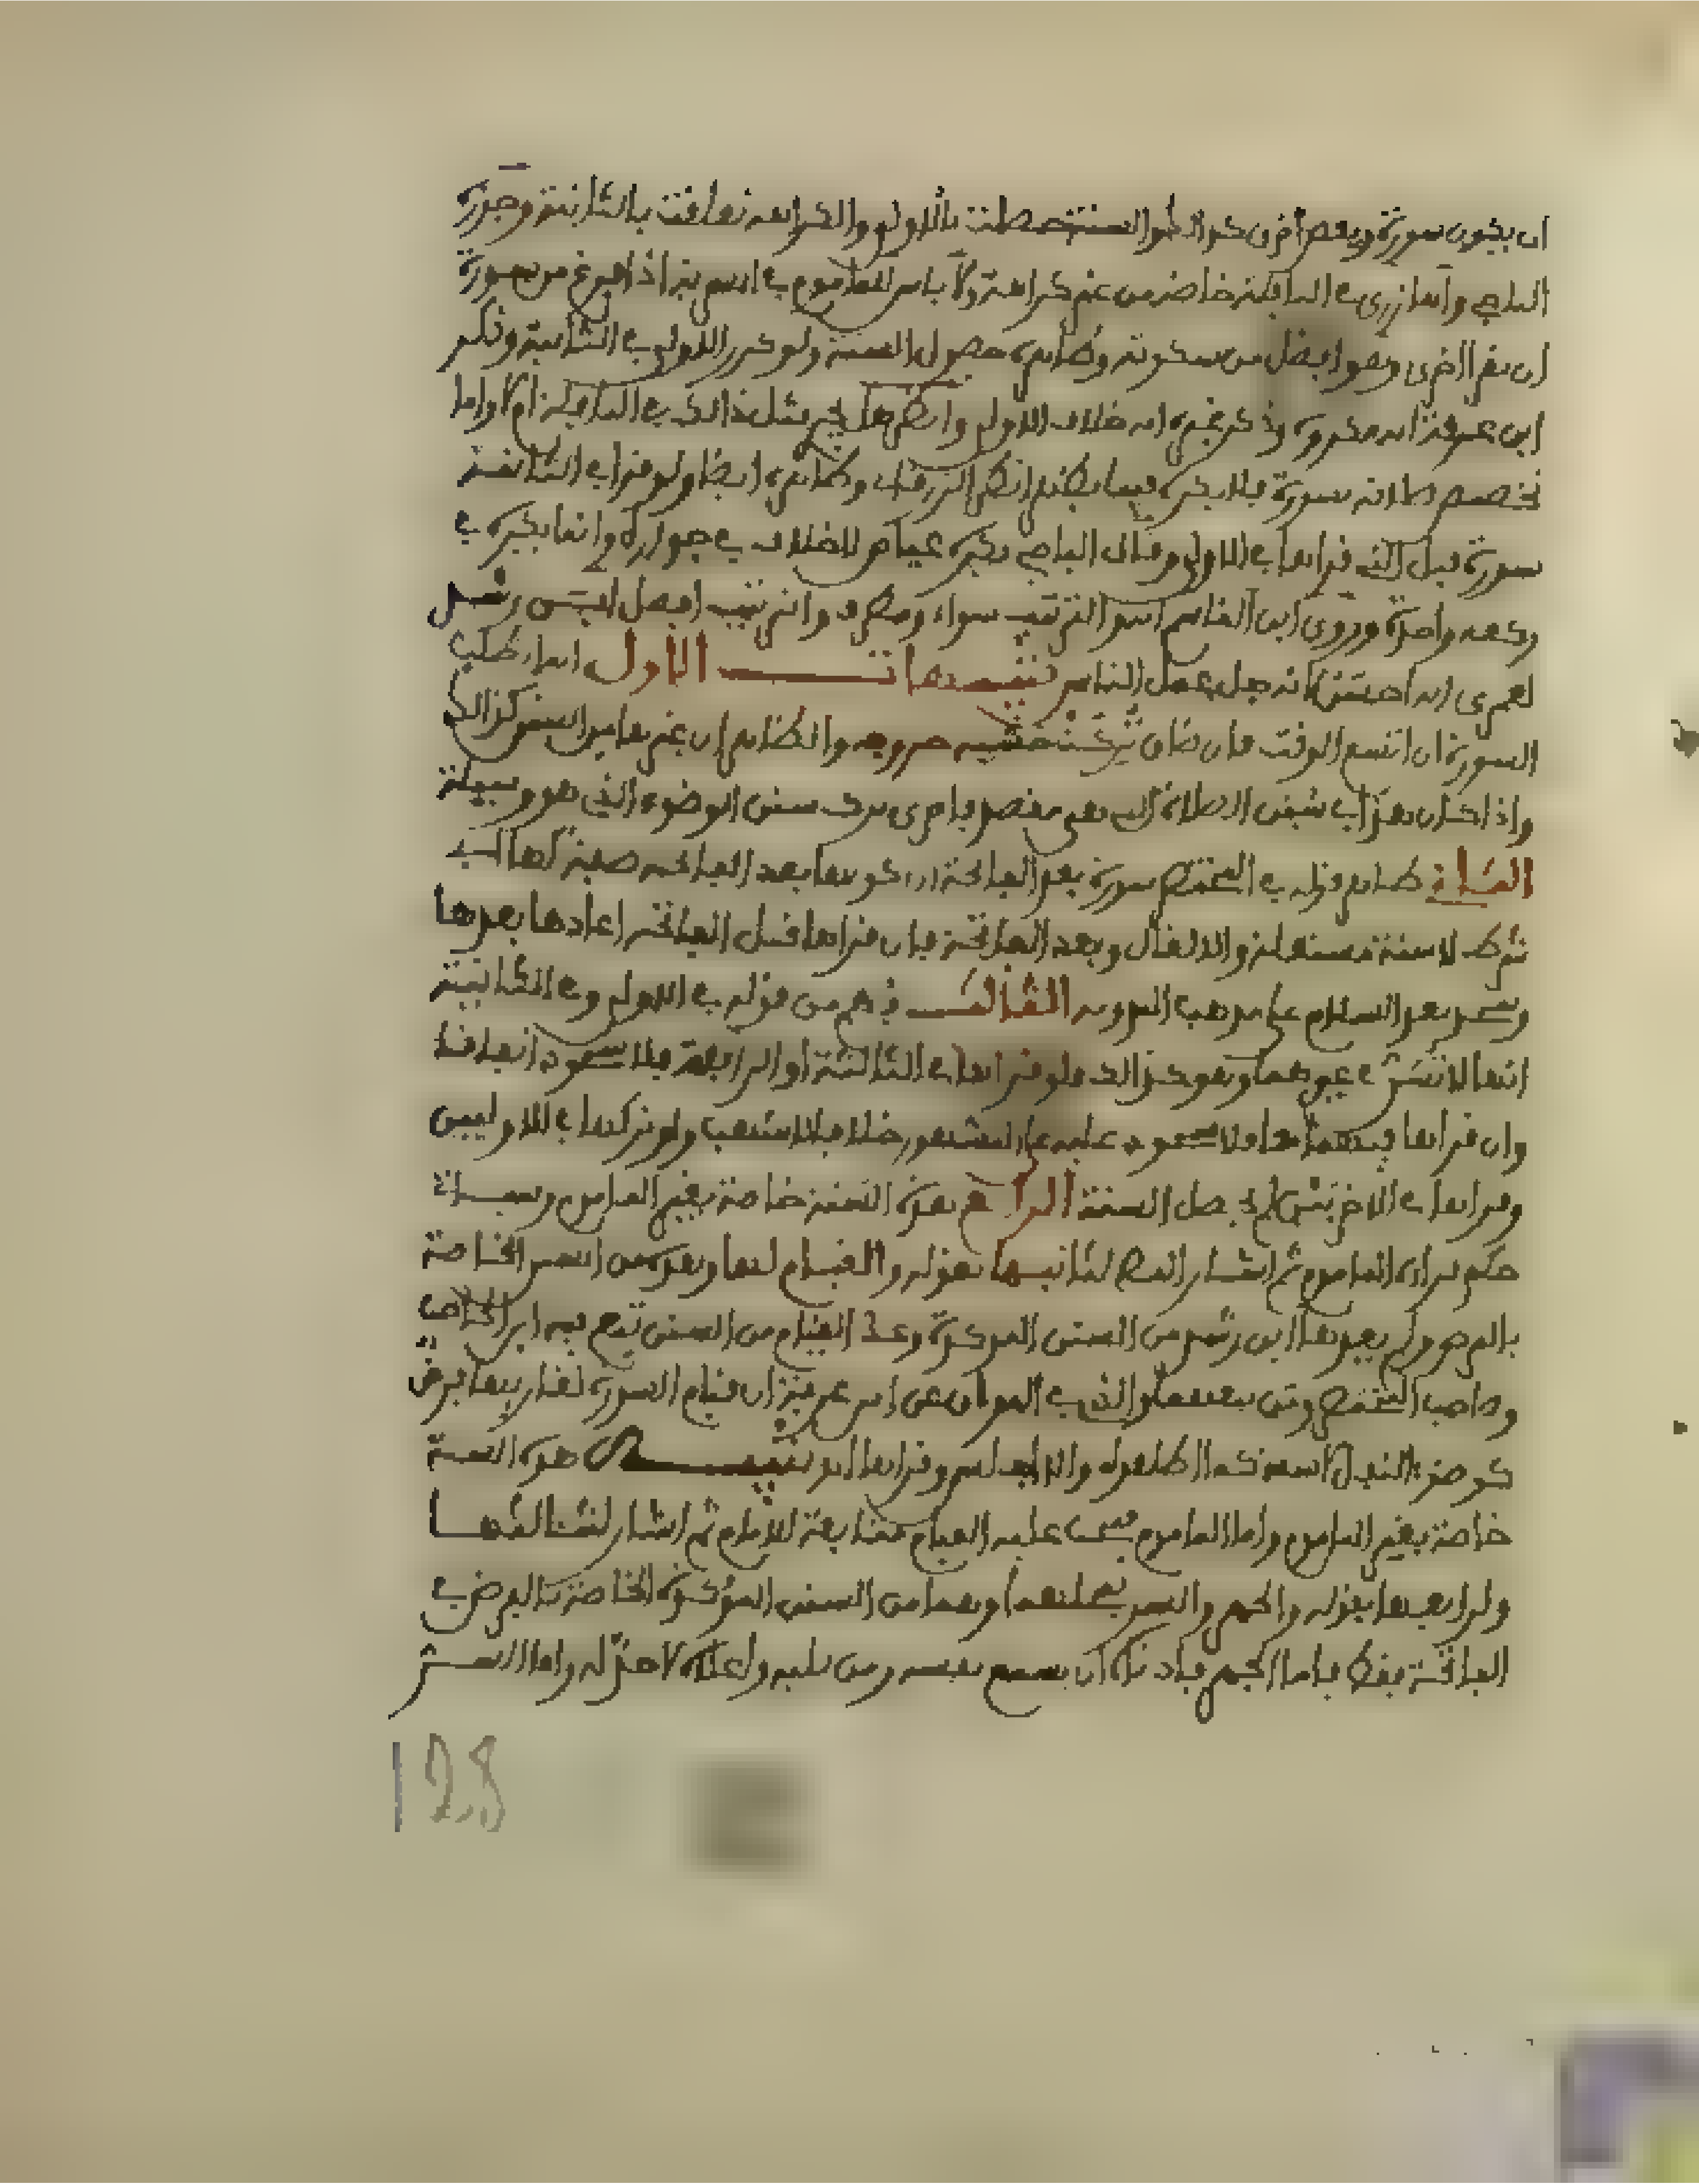 ان يكون سورة وبعض اخرى السنة حصلت بالاولى والكراهة تعلقت بالثانية وجوزه
الباجي والمازري في النافلة خاصة من غير كراهة ولا باس للماموم في السرية اذا فرغ من سورة
ان يقرا اخرى وهو افضل من سكوته وظاهره حصول السنة ولو كرر الاولى في الثانية وذكر
ابن عرفة انه مكروه وذكر غيره انه خلاف الاولى وانظر هل يجري مثل ذلك في النافلة ام لا واما
تخصيص صلاته بسورة فلا يكره فيما يظهر انظر الزرقاني وظاهره ايضا ولو قرا في الثانية
سورة قبل التي قراها في الاولى وقال الباجي يكره عياض لا خلاف في جوازه وانما يكره في
ركعة واحدة وروى ابن القاسم الترتيب سواء ومطرف والترتيب افضل ابن رشد
لعمري انه احسن لانه جل عمل الناس تنبيهات الاول انما طلب
السورة ان اتسع الوقت فان ضاق تركت خشية خروجه والظاهر ان غيرها من السنن كذلك
واذا كان هذا في سنن الصلاة التي هي مقصد فاحرى ترك سنن الوضوء الذي هو وسيلة
الثاني ظاهر قوله في المختصر سورة بعد الفاتحة ان كونها بعد الفاتحة صفة لها اي
شرط لا سنة مستقلة والانفال وبعد الفاتحة فان قراها قبل الفاتحة اعادها بعدها
وسجد بعد السلام على مذهب المدونة الثالث فهم من قوله في الاولى وفي الثانية
انها لا تسن في غيرهما وهو كذلك فلو قراها في الثالثة او الرابعة فلا سجود اتفاقا
وان قراها فيهما معا فلا سجود عليه على المشهور خلافا لاشهب ولو تركها في الاوليين
وقراها في الاخريين لم تحصل السنة الرابع هذه السنة خاصة بغير الماموم وسياتي
حكم قراءة الماموم ثم اشار الناظم لثانيها بقوله والقيام لها وهو من السنن الخاصة
بالفرض ولم يعدها ابن رشد من السنن المؤكدة وعد القيام من السنن تبع فيه ابن الحاجب
وصاحب المختصر ومن تبعهما والذي في المواق عن ابن عرفة ان قيام السورة لقارئها فرض
كوضوء النفل لاسنة كما اطلقوه والا لجلس وقراها اهـ تنبيه هذه السنة
خاصة بغير الماموم واما الماموم فيجب عليه القيام متابعة للامام ثم اشار لثالثها
ولرابعها بقوله والجهر والسر بمحلهما وهما من السنن المؤكدة الخاصة بالفرض في
الفاتحة فقط فاما الجهر فادناه ان يسمع نفسه ومن يليه واعلاه لا حد له واما السر
128